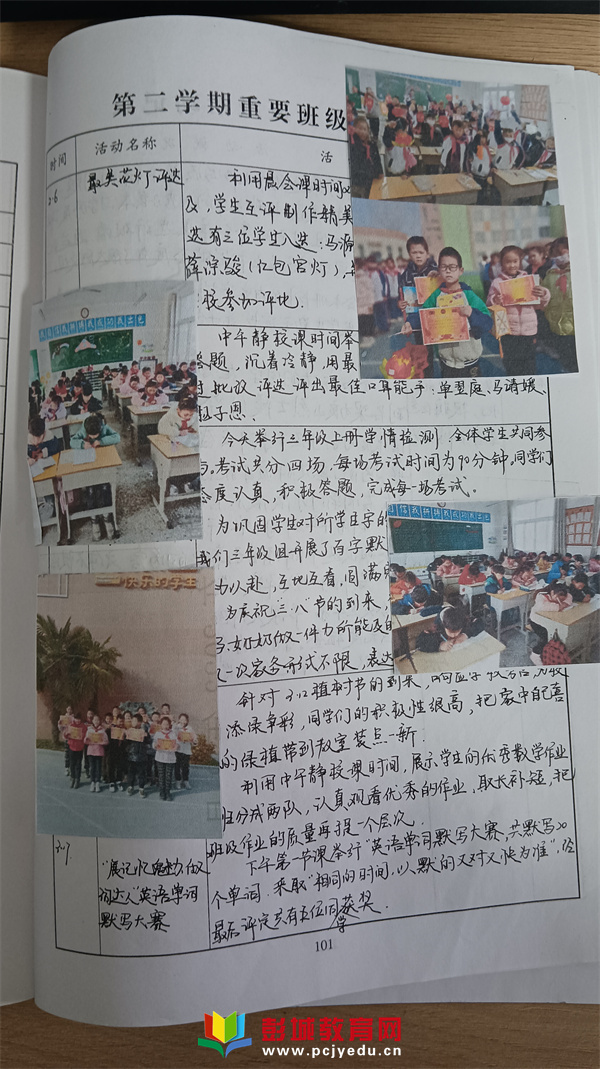 第二学期重要班级
时间
活动名称
活
2.6
最美花灯评选
利用晨会课时间
及,学生互评制作精美
选有三位学生入选:马
骏(红包宫灯),
校参加评比.
中午静校课时间举
答题,沉着冷静,用最
过批改评选评出最佳口算能手:单翌庭、马请媛、
子恩.
今天举行三年级上册学情检测 全体学生共同参
与。考试共分四场,每场考试时间为90分钟。同学们
态度认真,积极答题,完成每一场考试。
为巩固学生对所学生字的
我们三年级组开展了百字默
力以赴,互地互看,圆满
为庆祝三.八节的到来,
奶奶做一件力所能及的
一次家务形式不限,表达
针对3.12植树节的到来,响应学校
添绿争彩,同学们的积极性很高,把家中自己喜
的绿植带到教室装点一新.
利用中午静校课时间,展示学生的优秀数学作业
班分成两队,认真观看优秀的作业,取长补短,把
班级作业的质量再提一个层次.
3.7
“展记忆魅力 做
词达人”英语单词
默写大赛
下午第一节课举行“英语单词默写大赛,共默写20
个单词.采取“相同的时间,以默的又对又快为准”,经
最后评定共有五位同学获奖.
101
快乐的学生
彭城教育网
www.pcjyedu.cn